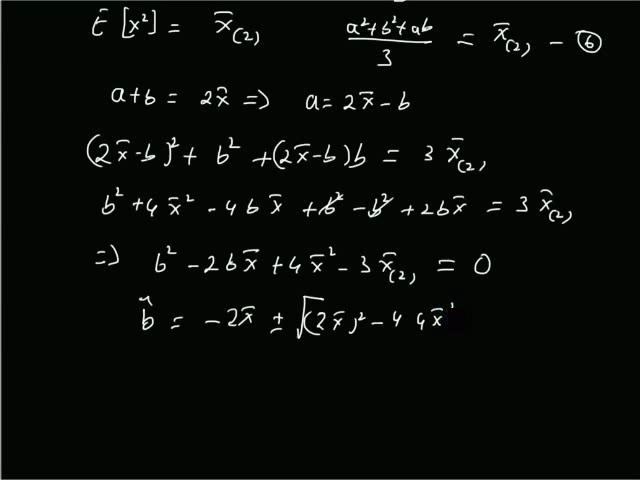 E [x²] = x̄₍₂₎   (a²+b²+ab)/3 = x̄₍₂₎ – ⑥
a+b = 2x̄ => a = 2x̄ – b
(2x̄–b)² + b² + (2x̄–b)b = 3 x̄₍₂₎
b² + 4x̄² – 4bx̄ + b² – b² + 2bx̄ = 3 x̄₍₂₎
=> b² – 2bx̄ + 4x̄² – 3x̄₍₂₎ = 0
b̂ = – 2x̄ ± √(2x̄)² – 4 4x̄²